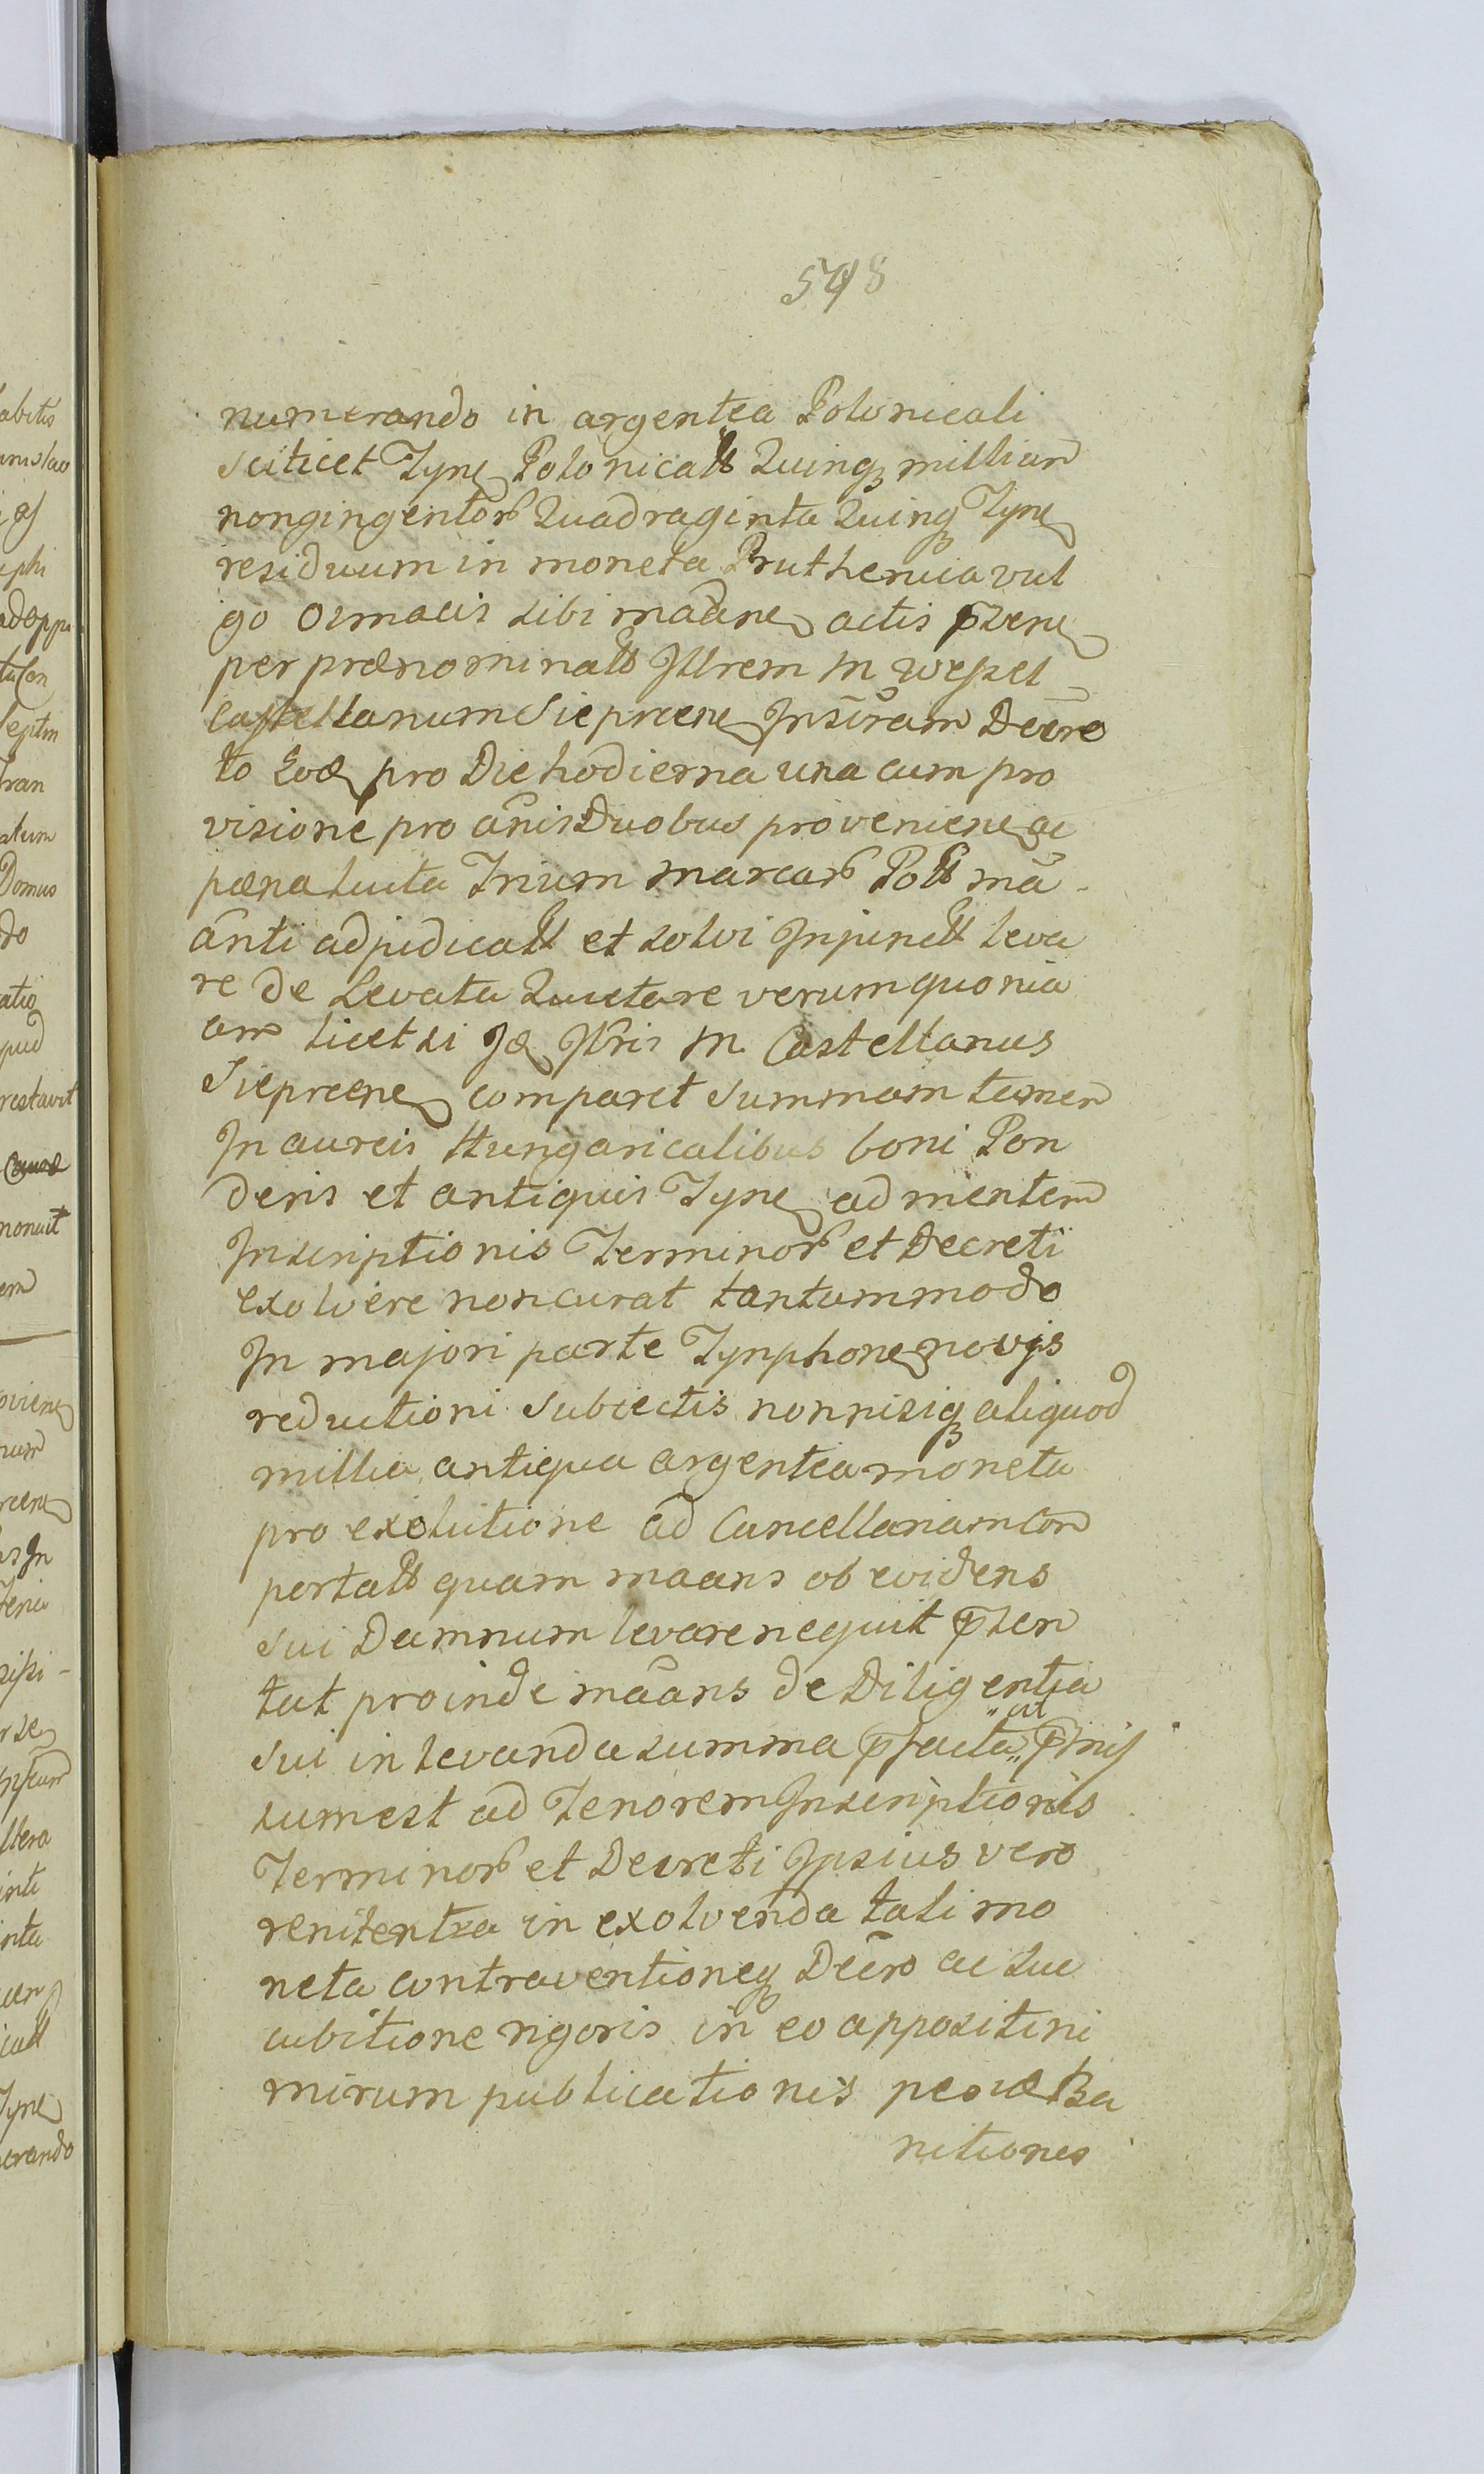 598
numerando in argentea Polonicali
scilicet Tyne Polonicall Quinq millium
nongingentor Quadraginta Quinq Tyne
residuum in moneta Pruthenica vul
go Osmacis sibi maane actis psene
per prænominall Jllrem M Wessel
Castellanum Siepreene Instram Decre
to Eod pro Die hodierna una cum pro
visione pro anis Duobus proveniene ac
pæna lucta Trium marcar Poll ma
anti adjudicall et solvi Injunell leva
re de Levata Quietare verum quonia
am licet si Jd Jllris M. Castellanus
Siepreene comparet summam tamen
In aureis Hungaricalibus boni Pon
deris et antiquis Tyne ad mentem
Inscriptionis Terminor et Decreti
exolvere non curat tantummodo
In majori parte Tynphone novis
reductioni subiectis nonnisiq aliquod
millia antiqua argentea moneta
pro exolutione ad Cancellariam Com
portall quam maans ob evidens
sui Damnum levare nequit psen
tat proinde maans de Diligentia
sui in levanda summa pfacta ut pmis
sum est ad Tenorem Inscriptionis
Terminor et Decreti Ipsius vero
renitentia in exolvenda tali mo
neta contraventioneq Decro ac suc
cubitione rigoris in eo appositi ni
mirum publicationis peræ Ba
nitiones